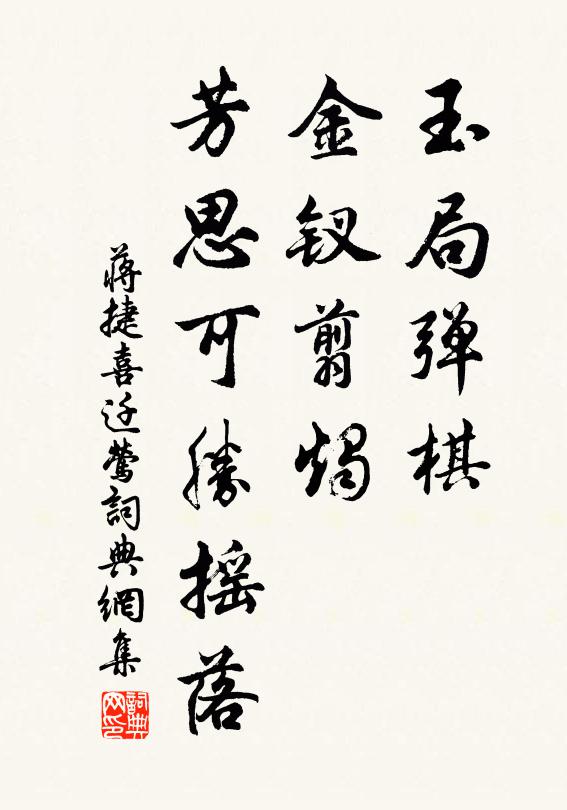 玉局弹棋
金钗翦烛
芳思可胜摇落
蒋捷喜迁莺詞典網集
詞典网印